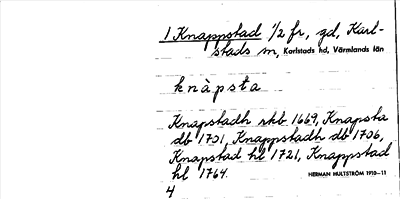 1 Knappstad 1/2 fr, gd, Karl-
stads m, Karlstads hd, Värmlands län
knàpsta
Knapstadh skb 1669, Knapsta
db 1701, Knappstadh db 1706,
Knapstad hl 1721, Knappstad
hl 1764.
HERMAN HULTSTRÖM 1910-11
4